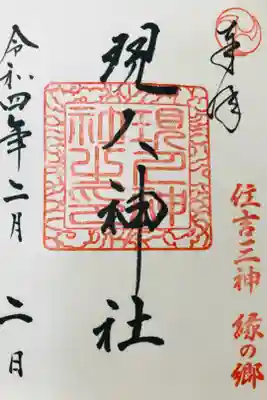 奉拝
住吉三神 縁の郷
現人神社
令和四年二月 二日